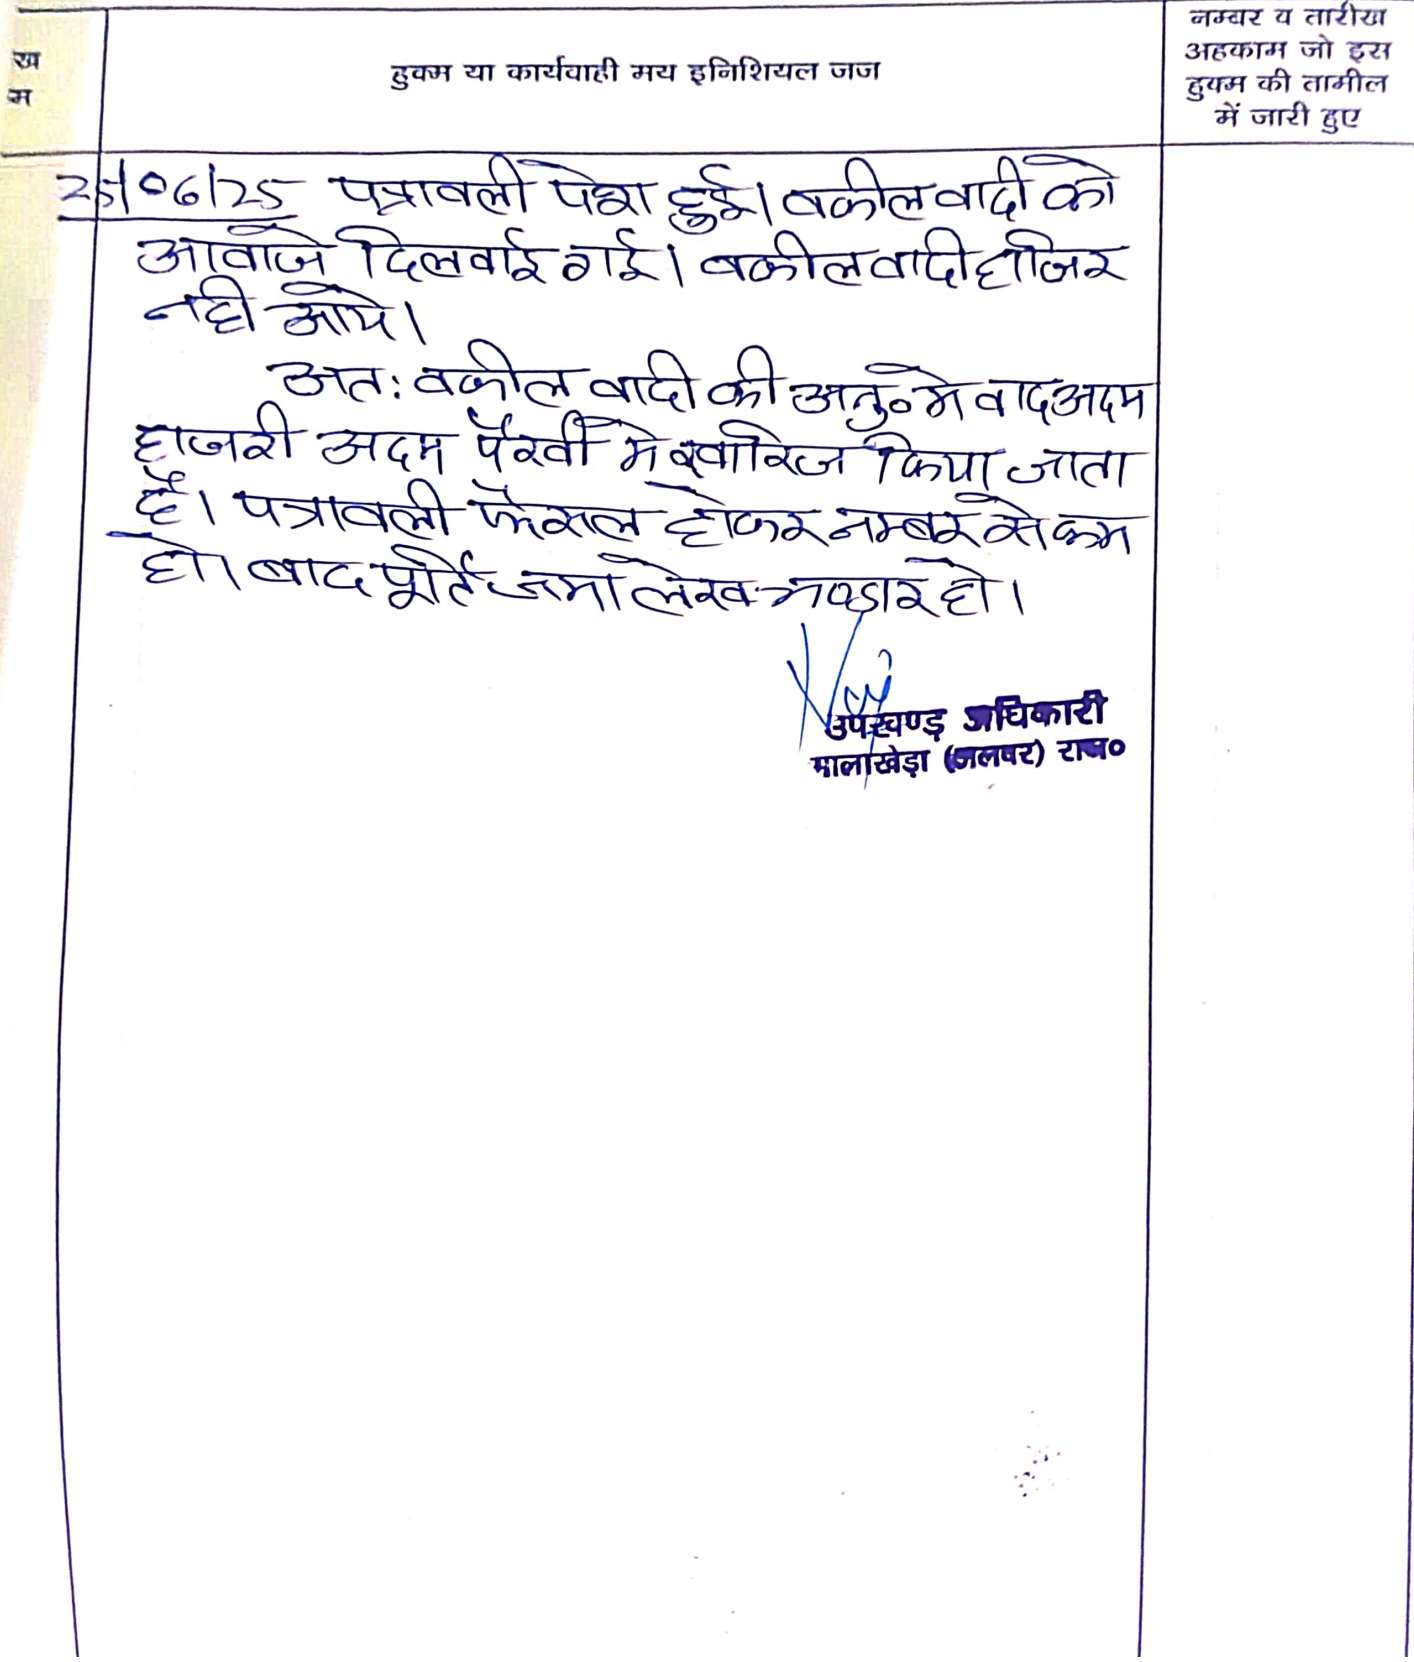 ख
म
हुक्म या कार्यवाही मय इनिशियल जज
नम्बर व तारीख
अहकाम जो इस
हुक्म की तामील
में जारी हुए
25/06/25 पत्रावली पेश हुई। वकील वादी को
आवाजे दिलवाई गई। वकील वादी हाजिर
नही आये।
अत: वकील वादी की अनु० मे वाद अदम
हाजरी अदम पैरवी मे खारिज किया जाता
है। पत्रावली फैसल होकर नम्बर से कम
हो। बाद पूर्ति जमा लेख भण्डार हो।
उपखण्ड अधिकारी
मालाखेड़ा (अलवर) राज०